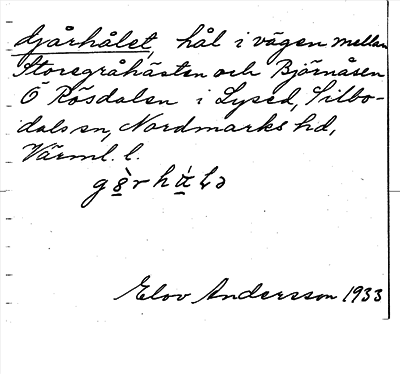 djårhålet, hål i vägen mellan
Storegråhästen och Björnåsen
Ö Rösdalen i Lysed, Silbo-
dals sn, Nordmarks hd,
Värml. l.
Elov Andersson 1933